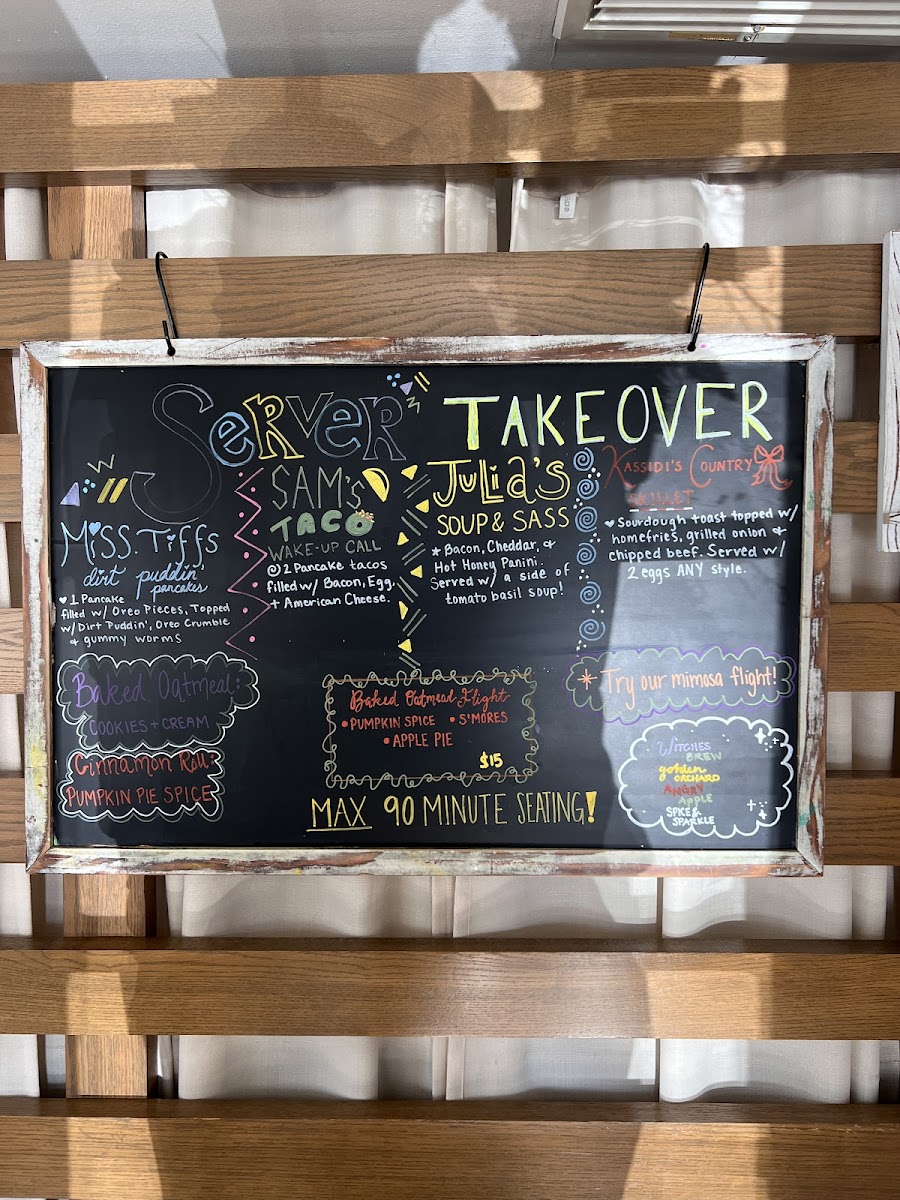 SERVER TAKEOVER
MISS. TIFFS
dirt puddin'
pancakes
1 Pancake
filled w/ Oreo Pieces, Topped
w/ Dirt Puddin', Oreo Crumble
& gummy worms
SAM'S
TACO
WAKE-UP CALL
2 Pancake tacos
filled w/ Bacon, Egg,
+ American Cheese.
JULIA'S
SOUP & SASS
Bacon, Cheddar, &
Hot Honey Panini.
Served w/ a side of
tomato basil soup!
KASSIDI'S COUNTRY
SKILLET
Sourdough toast topped w/
homefries, grilled onion &
chipped beef. Served w/
2 eggs ANY style.
Baked Oatmeal:
COOKIES + CREAM
Cinnamon Roll:
PUMPKIN PIE SPICE
Baked Oatmeal Flight
• PUMPKIN SPICE • S'MORES
• APPLE PIE
$15
MAX 90 MINUTE SEATING!
Try our mimosa flight!
WITCHES
BREW
golden
ORCHARD
ANGRY
APPLE
SPICE &
SPARKLE